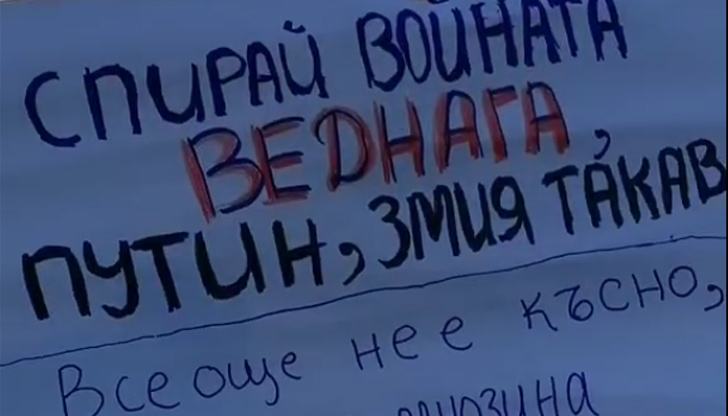 СПИРАЙ ВОЙНАТА
ВЕДНАГА,
ПУТИН, ЗМИЯ ТАКАВ
Все още не е късно,